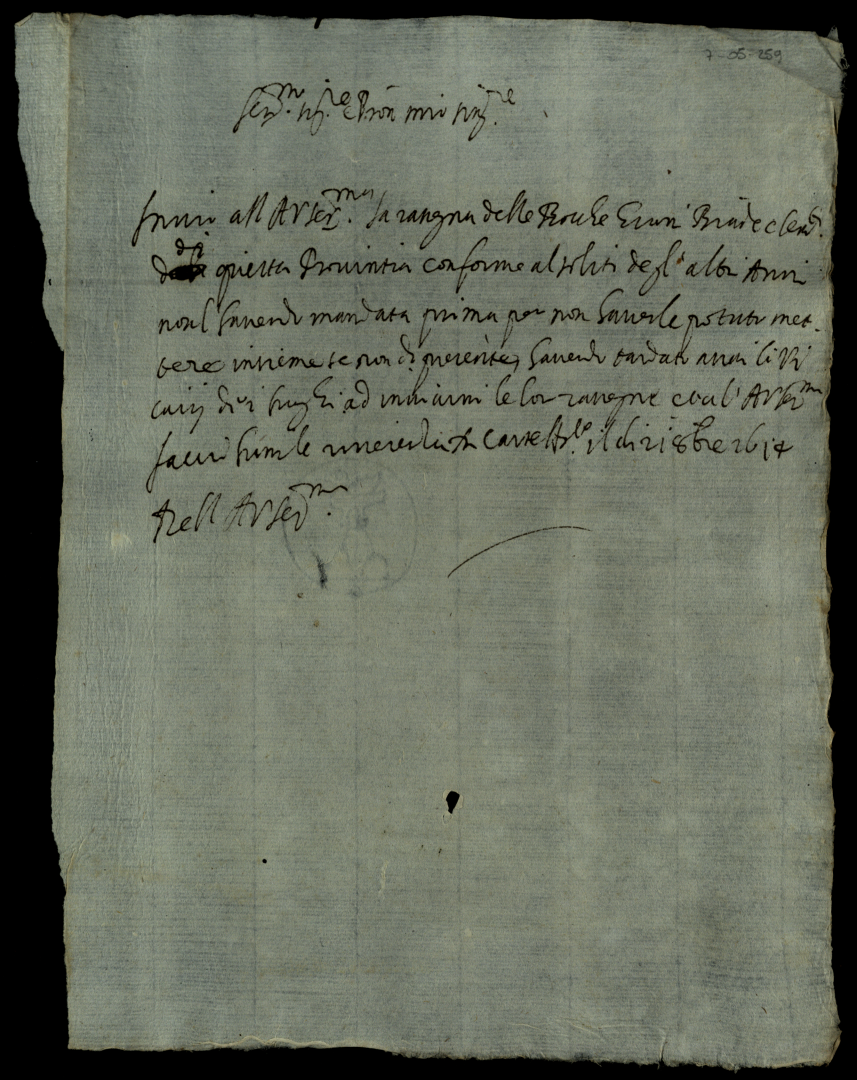 7-05-259
Ser.mo Sig.re e Pron mio sing.re
Invio all A V Ser.ma la rasegna delle Bocche
di questa Provintia conforme al solito degl'altri Anni
non l havendo mandata prima per non haverle potute met-
tere insieme se non di presente, havendo tardato assai li Vi
carij di i lughi ad inviarmi le lor rasegne et all' A V Ser.ma
faccio humile riverenza Castell il di 21 8bre 1614
Dell A V Ser.ma